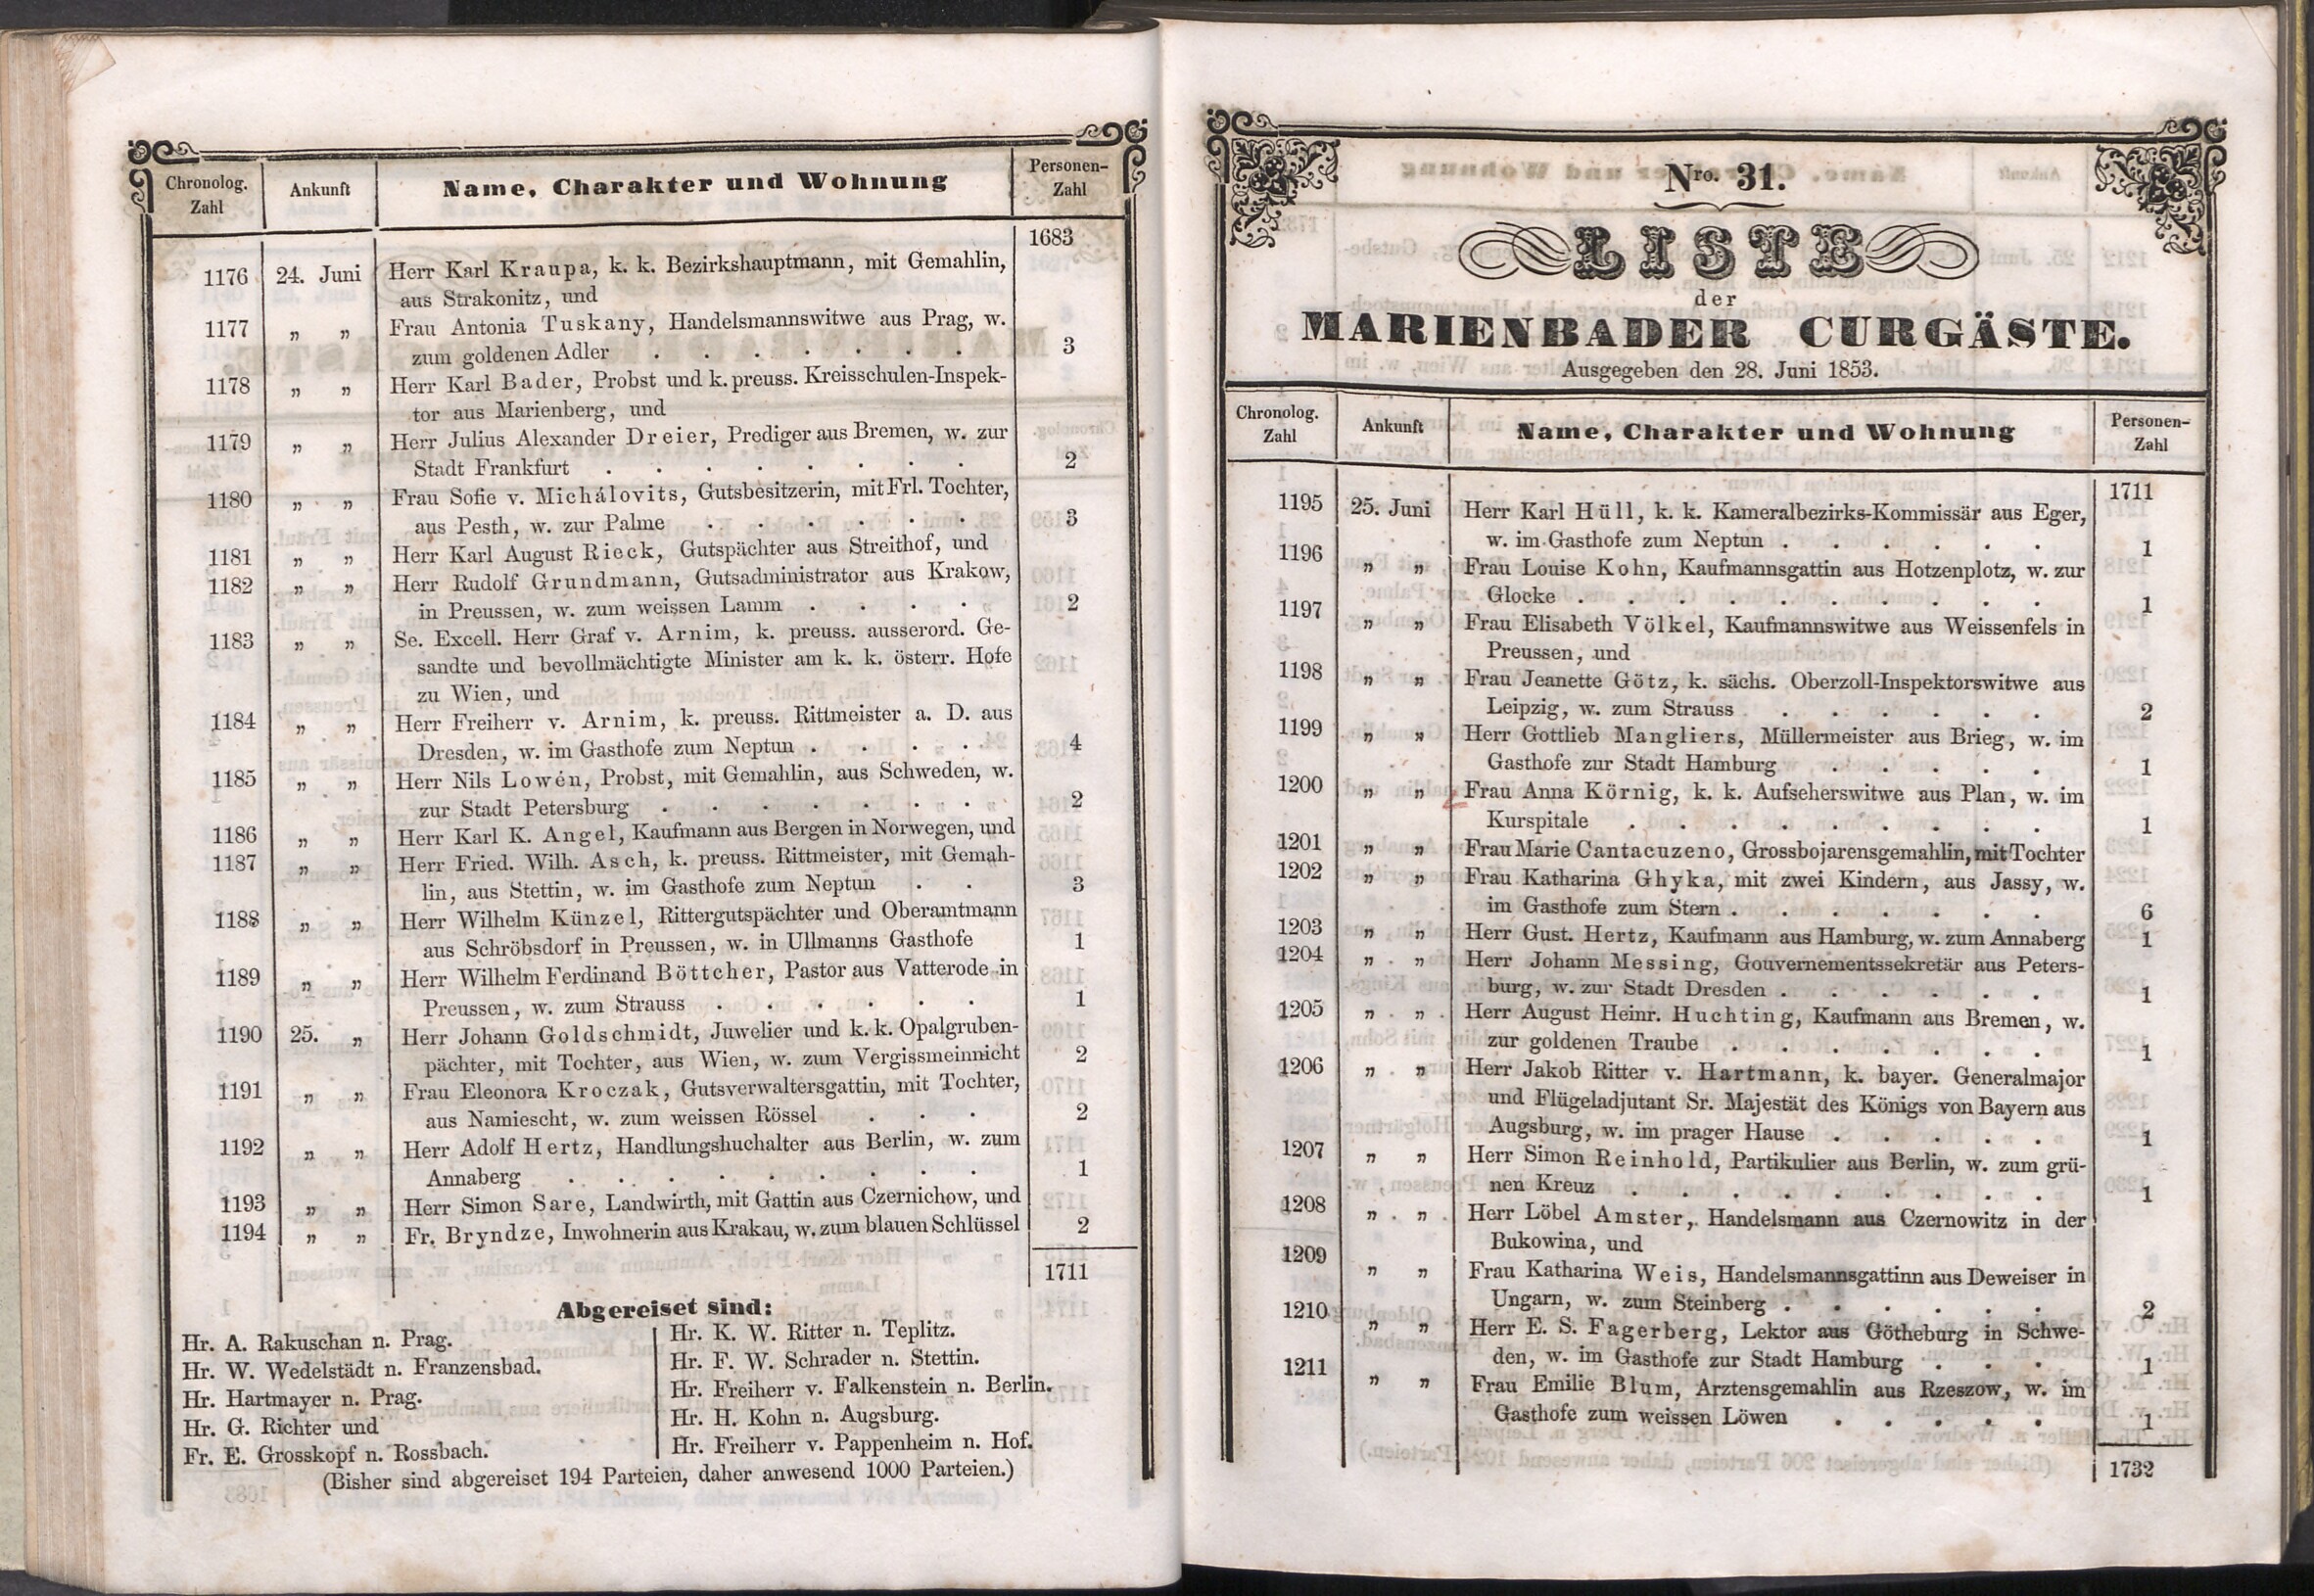 Chronolog. Zahl | Ankunft | Name, Charakter und Wohnung | Personen-Zahl
1683
1176 24. Juni Herr Karl Kraupa, k. k. Bezirkshauptmann, mit Gemahlin,
aus Strakonitz, und
1177 „ „ Frau Antonia Tuskany, Handelsmannswitwe aus Prag, w.
zum goldenen Adler . . . . . . . 3
1178 „ „ Herr Karl Bader, Probst und k. preuss. Kreisschulen-Inspek-
tor aus Marienberg, und
1179 „ „ Herr Julius Alexander Dreier, Prediger aus Bremen, w. zur
Stadt Frankfurt . . . . . . . . 2
1180 „ „ Frau Sofie v. Michálovits, Gutsbesitzerin, mit Frl. Tochter,
aus Pesth, w. zur Palme . . . . . . 3
1181 „ „ Herr Karl August Rieck, Gutspächter aus Streithof, und
1182 „ „ Herr Rudolf Grundmann, Gutsadministrator aus Krakow,
in Preussen, w. zum weissen Lamm . . . . 2
1183 „ „ Se. Excell. Herr Graf v. Arnim, k. preuss. ausserord. Ge-
sandte und bevollmächtigte Minister am k. k. österr. Hofe
zu Wien, und
1184 „ „ Herr Freiherr v. Arnim, k. preuss. Rittmeister a. D. aus
Dresden, w. im Gasthofe zum Neptun . . . . 4
1185 „ „ Herr Nils Lowén, Probst, mit Gemahlin, aus Schweden, w.
zur Stadt Petersburg . . . . . . . 2
1186 „ „ Herr Karl K. Angel, Kaufmann aus Bergen in Norwegen, und
1187 „ „ Herr Fried. Wilh. Asch, k. preuss. Rittmeister, mit Gemah-
lin, aus Stettin, w. im Gasthofe zum Neptun . . 3
1188 „ „ Herr Wilhelm Künzel, Rittergutspächter und Oberamtmann
aus Schröbsdorf in Preussen, w. in Ullmanns Gasthofe 1
1189 „ „ Herr Wilhelm Ferdinand Böttcher, Pastor aus Vatterode in
Preussen, w. zum Strauss . . . . . . 1
1190 25. „ Herr Johann Goldschmidt, Juwelier und k. k. Opalgruben-
pächter, mit Tochter, aus Wien, w. zum Vergissmeinnicht 2
1191 „ „ Frau Eleonora Kroczak, Gutsverwaltersgattin, mit Tochter,
aus Namiescht, w. zum weissen Rössel . . . 2
1192 „ „ Herr Adolf Hertz, Handlungshuchalter aus Berlin, w. zum
Annaberg . . . . . . . . . 1
1193 „ „ Herr Simon Sare, Landwirth, mit Gattin aus Czernichow, und
1194 „ „ Fr. Bryndze, Inwohnerin aus Krakau, w. zum blauen Schlüssel 2
1711
Abgereiset sind:
Hr. A. Rakuschan n. Prag.
Hr. W. Wedelstädt n. Franzensbad.
Hr. Hartmayer n. Prag.
Hr. G. Richter und
Fr. E. Grosskopf n. Rossbach.
Hr. K. W. Ritter n. Teplitz.
Hr. F. W. Schrader n. Stettin.
Hr. Freiherr v. Falkenstein n. Berlin.
Hr. H. Kohn n. Augsburg.
Hr. Freiherr v. Pappenheim n. Hof.
(Bisher sind abgereiset 194 Parteien, daher anwesend 1000 Parteien.)
Nro. 31.
LISTE
der
MARIENBADER CURGÄSTE.
Ausgegeben den 28. Juni 1853.
Chronolog. Zahl | Ankunft | Name, Charakter und Wohnung | Personen-Zahl
1711
1195 25. Juni Herr Karl Hüll, k. k. Kameralbezirks-Kommissär aus Eger,
w. im Gasthofe zum Neptun . . . . . . 1
1196 „ „ Frau Louise Kohn, Kaufmannsgattin aus Hotzenplotz, w. zur
Glocke . . . . . . . . . . 1
1197 „ „ Frau Elisabeth Völkel, Kaufmannswitwe aus Weissenfels in
Preussen, und
1198 „ „ Frau Jeanette Götz, k. sächs. Oberzoll-Inspektorswitwe aus
Leipzig, w. zum Strauss . . . . . . 2
1199 „ „ Herr Gottlieb Mangliers, Müllermeister aus Brieg, w. im
Gasthofe zur Stadt Hamburg . . . . . 1
1200 „ „ Frau Anna Körnig, k. k. Aufseherswitwe aus Plan, w. im
Kurspitale . . . . . . . . . 1
1201 „ „ Frau Marie Cantacuzeno, Grossbojarensgemahlin, mit Tochter
1202 „ „ Frau Katharina Ghyka, mit zwei Kindern, aus Jassy, w.
im Gasthofe zum Stern . . . . . . . 6
1203 „ „ Herr Gust. Hertz, Kaufmann aus Hamburg, w. zum Annaberg 1
1204 „ „ Herr Johann Messing, Gouvernementssekretär aus Peters-
burg, w. zur Stadt Dresden . . . . . . 1
1205 „ „ Herr August Heinr. Huchting, Kaufmann aus Bremen, w.
zur goldenen Traube . . . . . . . 1
1206 „ „ Herr Jakob Ritter v. Hartmann, k. bayer. Generalmajor
und Flügeladjutant Sr. Majestät des Königs von Bayern aus
Augsburg, w. im prager Hause . . . . . 1
1207 „ „ Herr Simon Reinhold, Partikulier aus Berlin, w. zum grü-
nen Kreuz . . . . . . . . . 1
1208 „ „ Herr Löbel Amster, Handelsmann aus Czernowitz in der
Bukowina, und
1209 „ „ Frau Katharina Weis, Handelsmannsgattinn aus Deweiser in
Ungarn, w. zum Steinberg . . . . . . 2
1210 „ „ Herr E. S. Fagerberg, Lektor aus Götheburg in Schwe-
den, w. im Gasthofe zur Stadt Hamburg . . . 1
1211 „ „ Frau Emilie Blum, Arztensgemahlin aus Rzeszow, w. im
Gasthofe zum weissen Löwen . . . . . 1
1732